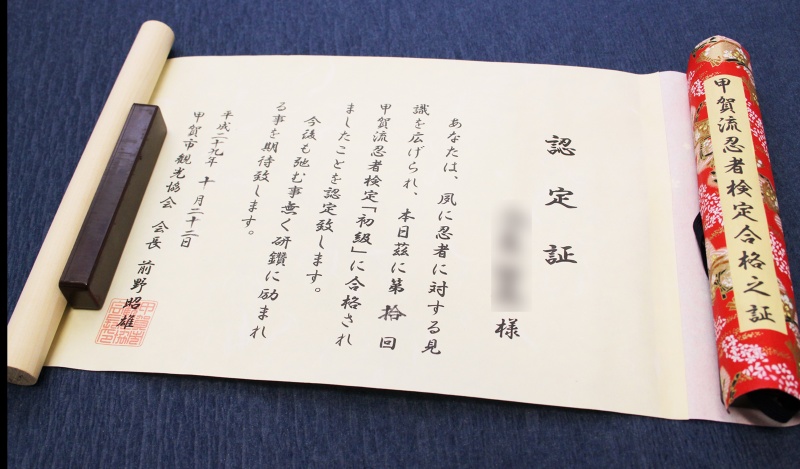 甲賀流忍者検定合格之証
認定証
様
あなたは、夙に忍者に対する見
識を広げられ、本日茲に第拾回
甲賀流忍者検定「初級」に合格され
ましたことを認定致します。
今後も弛む事無く研鑽に励まれ
る事を期待致します。
平成二十九年 十月二十二日
甲賀市観光協会 会長 前野昭雄